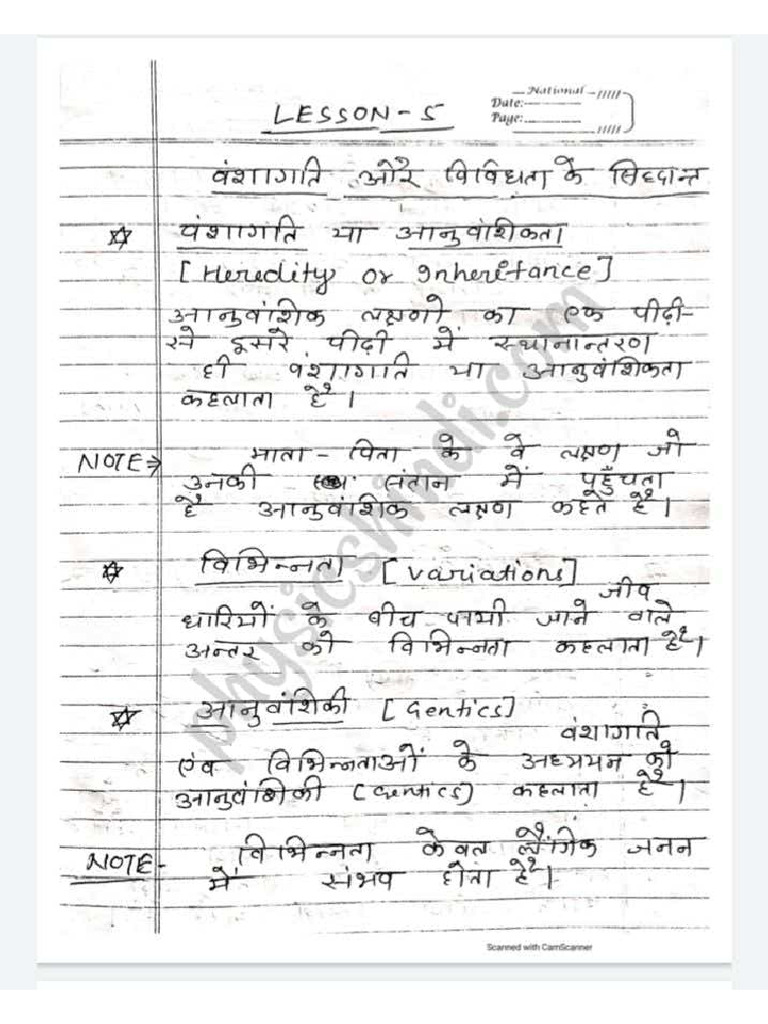 National
Date:
Page:
LESSON - 5
वंशागति और विविधता के सिद्धान्त
वंशागति या आनुवंशिकता
[Heredity or Inheritance]
आनुवंशिक लक्षणो का एक पीढ़ी-
से दूसरे पीढ़ी में स्थानान्तरण
ही वंशागति या आनुवंशिकता
कहलाता है।
NOTE⇒ माता - पिता के वे लक्षण जो
उनकी संतान में पहुँचता
है आनुवंशिक लक्षण कहते है।
विभिन्नता [Variations]
जीव
धारियों के बीच पायी जाने वाले
अन्तर को विभिन्नता कहलाता है।
आनुवंशिकी [Gentics]
वंशागति
एंव विभिन्नताओं के अध्ययन को
आनुवंशिकी (Gentics) कहलाता है।
NOTE - विभिन्नता केवल लैंगिक जनन
में संभव होता है।
physicshindi.com
Scanned with CamScanner